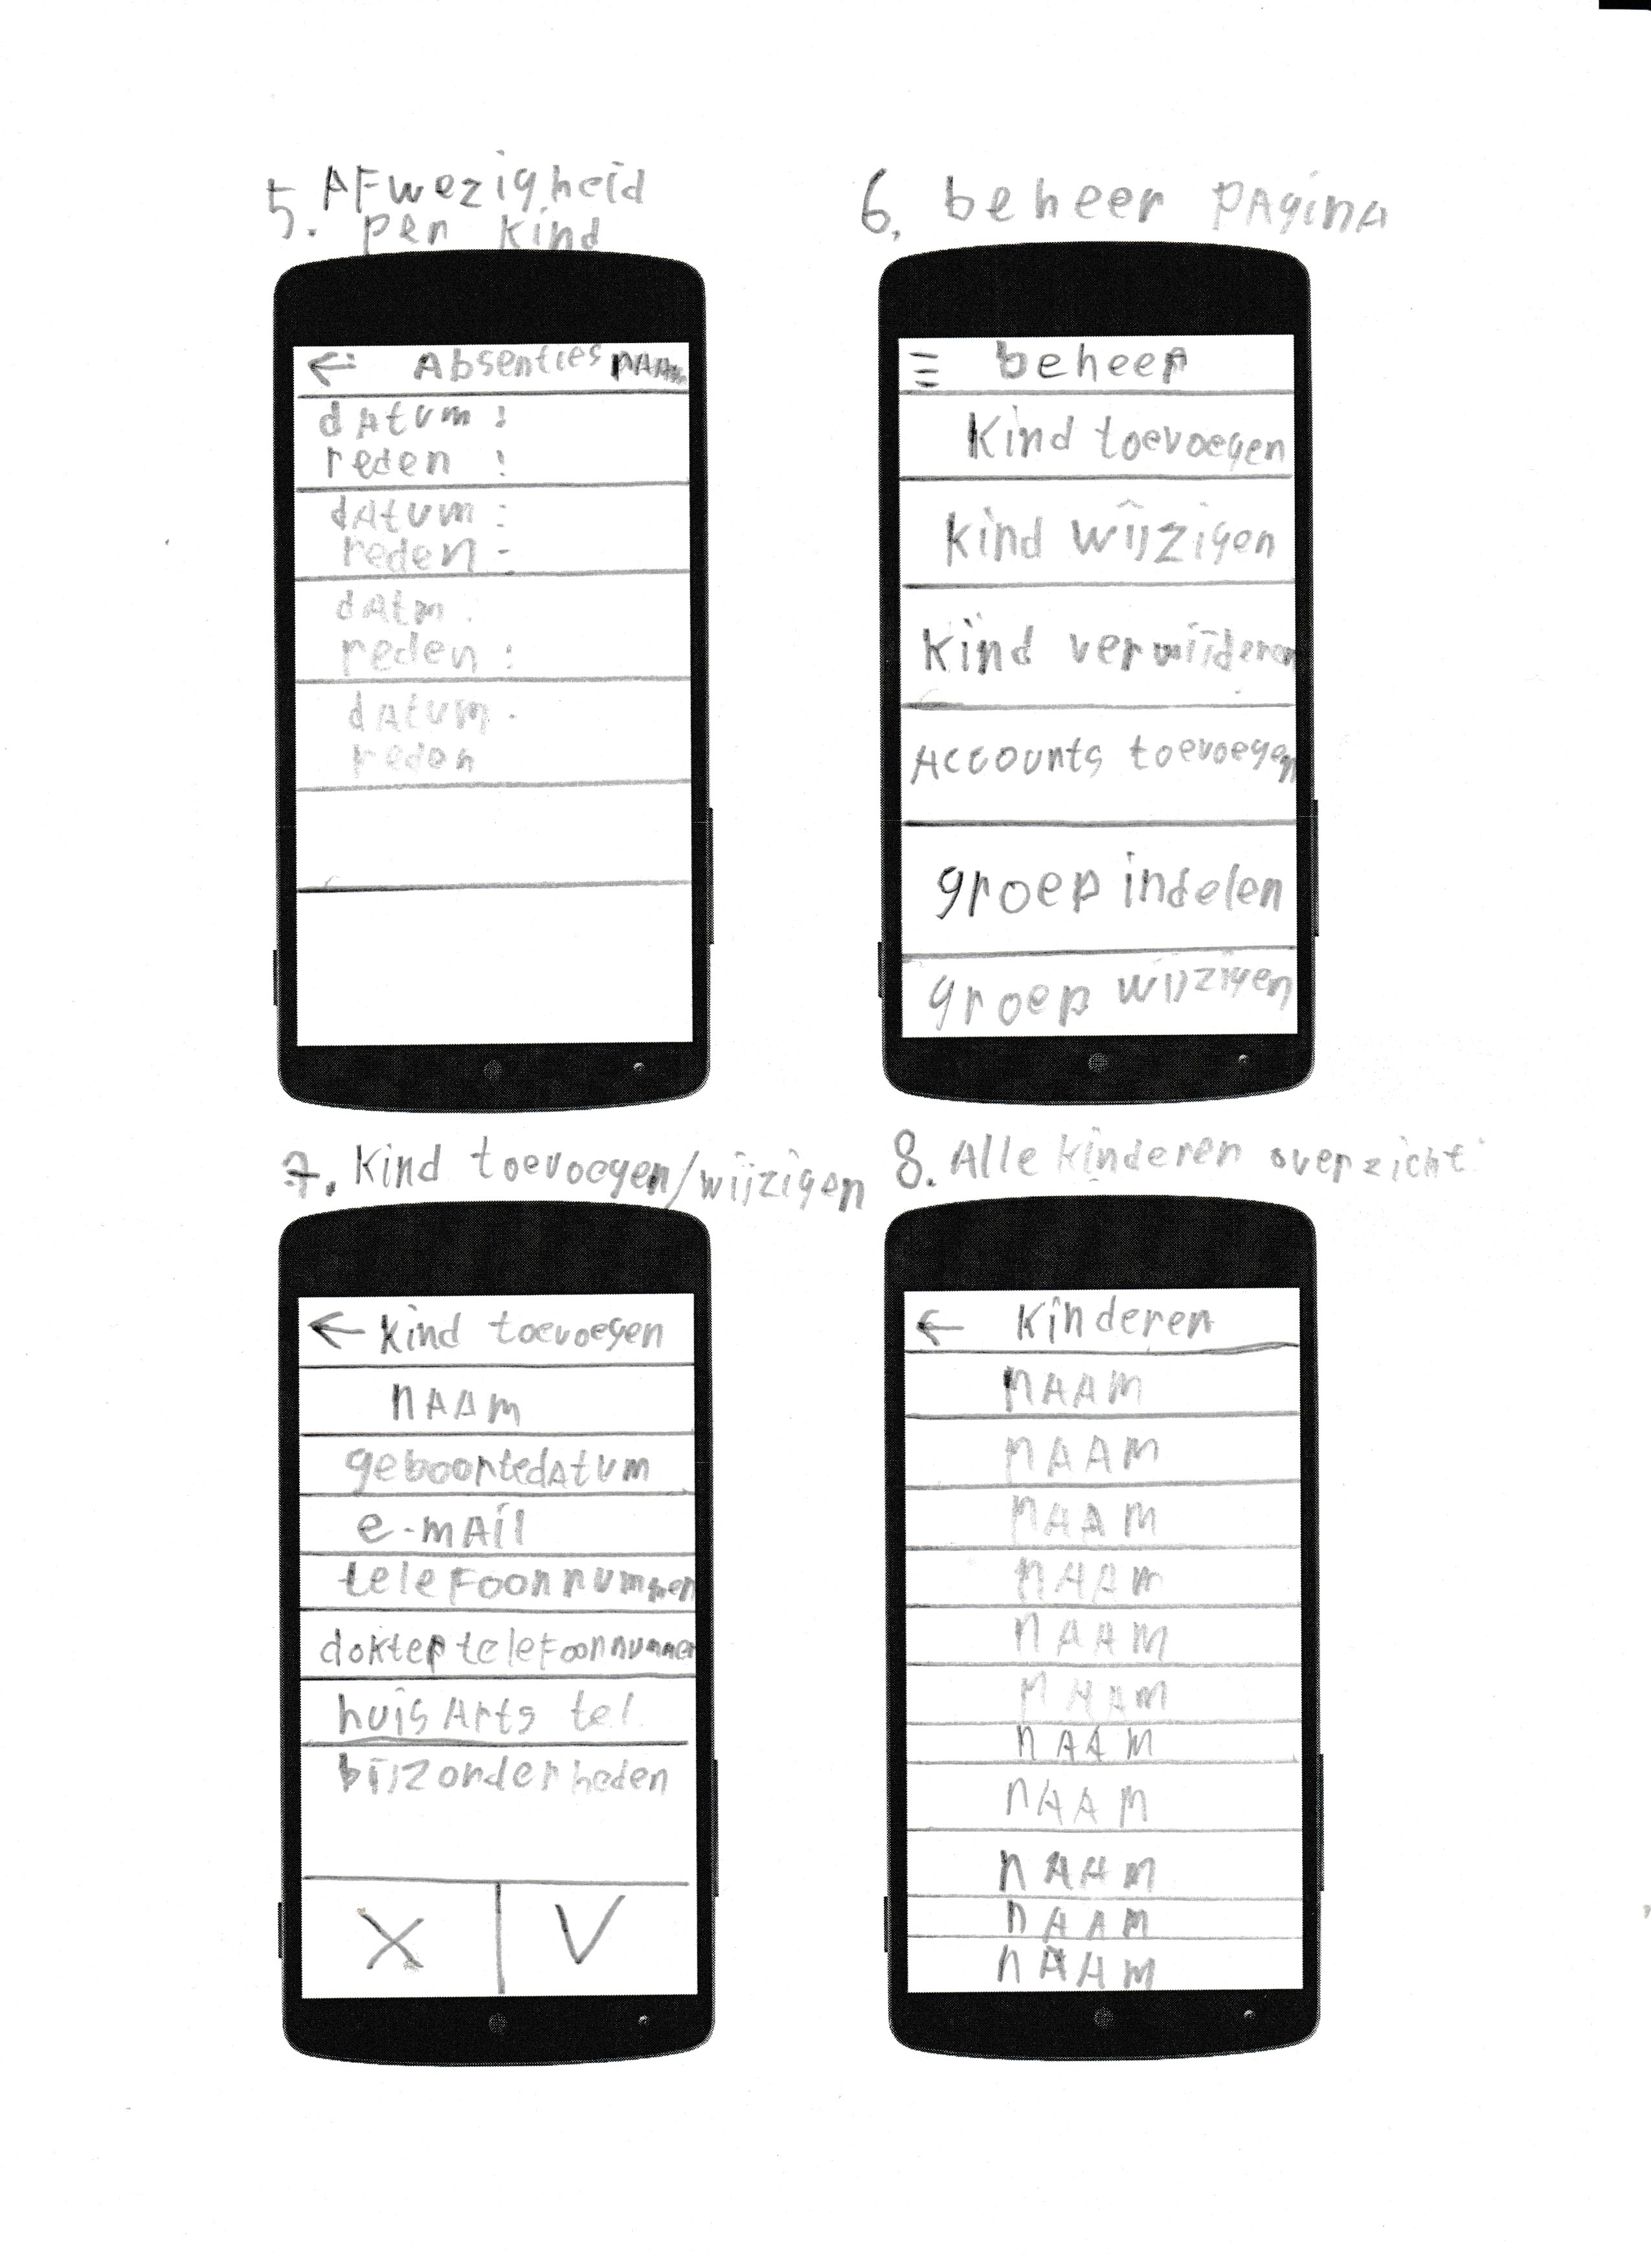 5. AFwezigheid
per kind
← Absenties nAAm
dAtum :
reden :
dAtum :
reden :
dAtm .
reden :
dAtum .
reden
6. beheer pAginA
☰ beheer
Kind toevoegen
kind wijzigen
kind verwijderen
Accounts toevoegen
groep indelen
groep wijzigen
7. Kind toevoegen/wijzigen
← kind toevoegen
nAAm
geboortedAtum
e-mAil
teleFoonnummer
dokter teleFoonnummer
huisArts tel.
bijzonderheden
X V
8. Alle kinderen overzicht
← Kinderen
nAAm
nAAm
nAAm
nAAm
nAAm
nAAm
nAAm
nAAm
nAAm
nAAm
nAAm